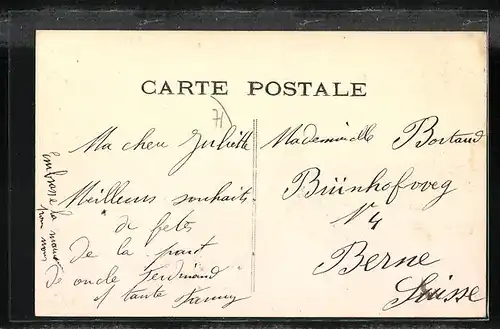 CARTE POSTALE
71
Ma cheu Juliette
Meilleurs souhaits
de fetes
De la part
de oncle Ferdinand
et tante Fanny
Embrasse la
pour nous
Mademoiselle Bortaud
Brünhofweg
N 4
Berne
Suisse